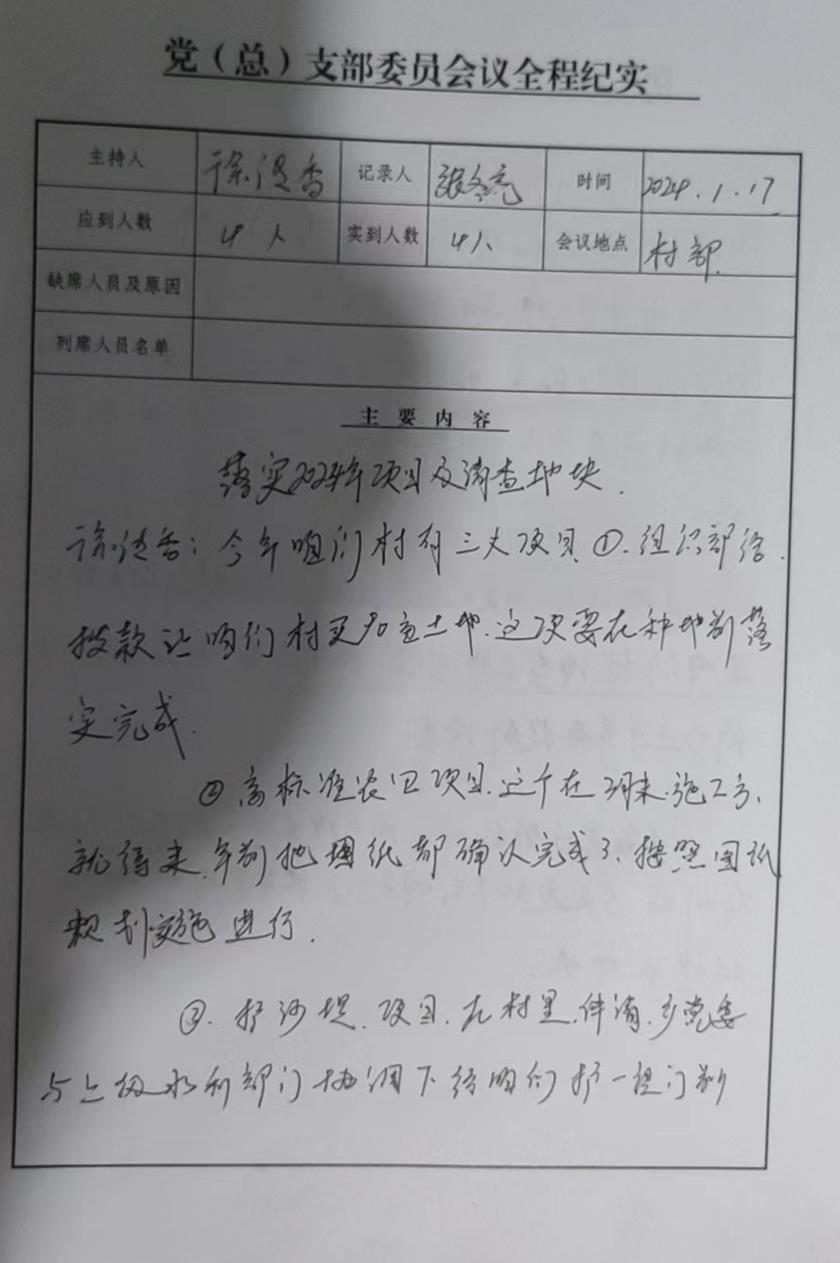 党（总）支部委员会议全程纪实
主持人 徐 香 记录人 张冬亮 时间 2024.1.17
应到人数 4人 实到人数 4人 会议地点 村部
缺席人员及原因
列席人员名单
主要内容
落实2024年项目及清查地块.
香：今年咱们村有三大项目①.组织部给
拨款让咱们村买 亩土地.这次要在种地前落
实完成.
②高标准农田项目.这个在 末.施工方.
就得来.年前把图纸都确认完成了.按照图纸
规划实施进行.
③.护 堤.项目.在村里.申请.乡党委
与上级水利部门协调下给咱们护一